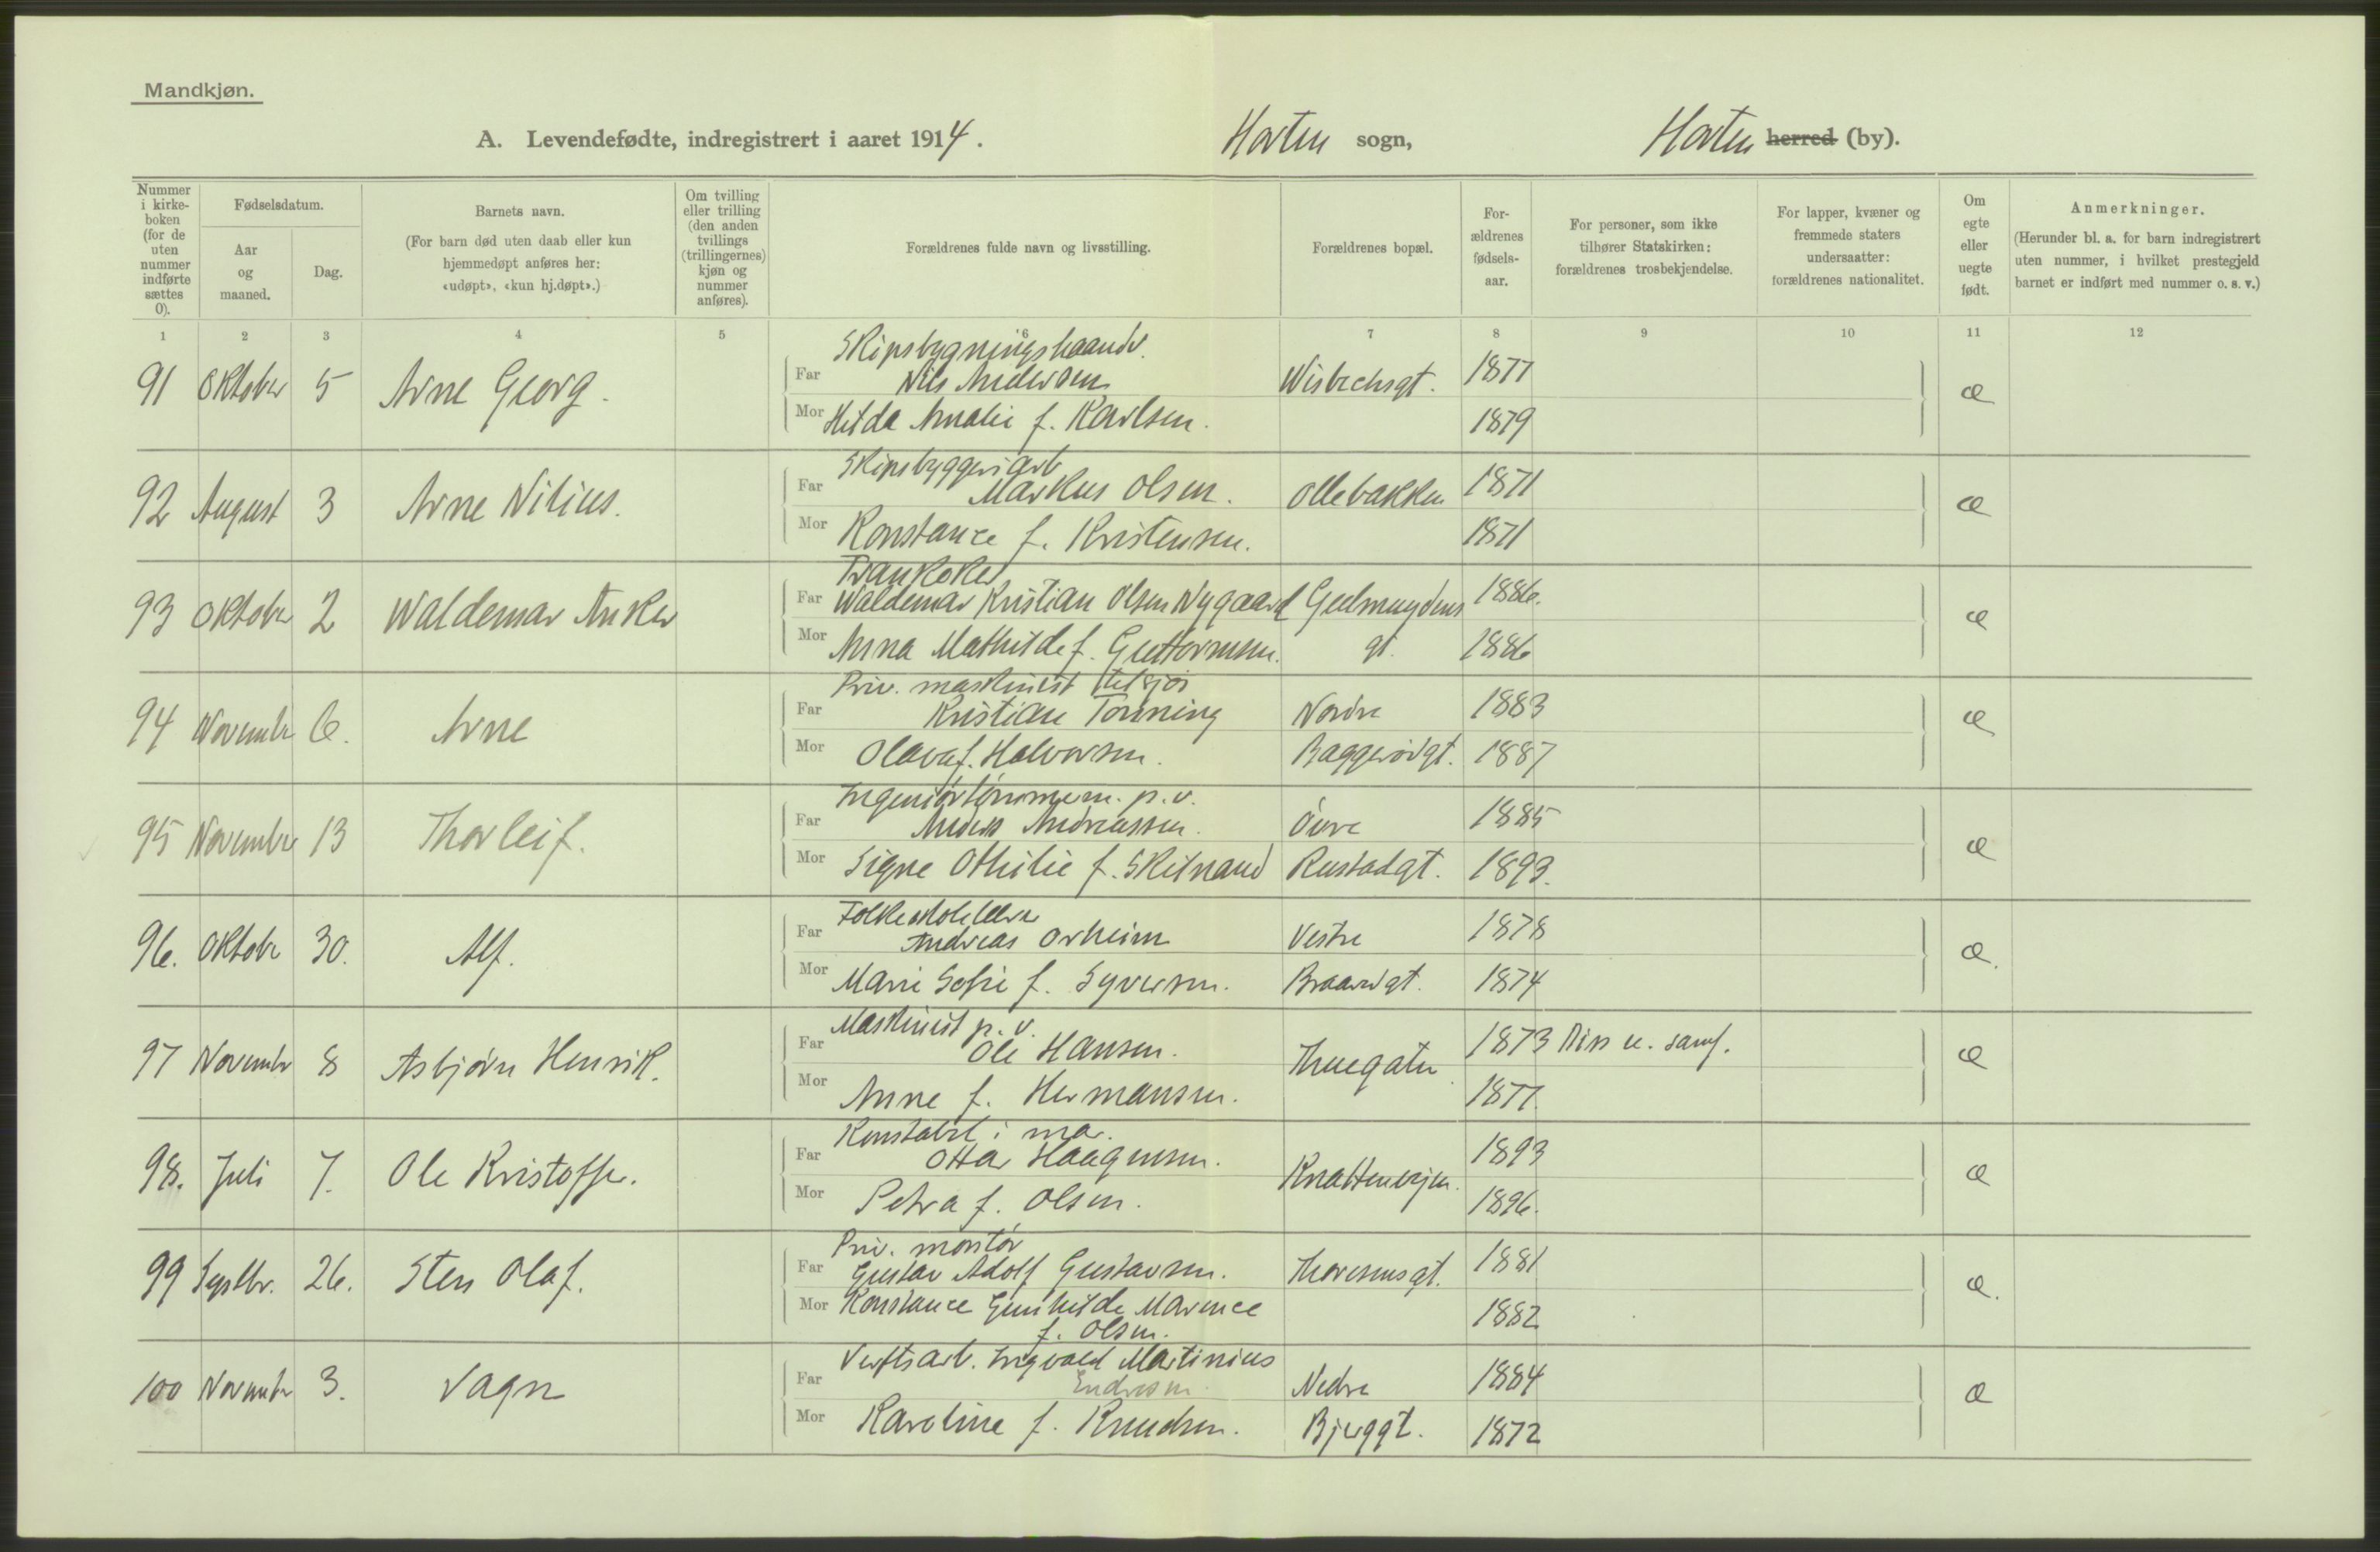 Mandkjøn.
A. Levendefødte, indregistrert i aaret 1914. Horten sogn, Horten herred (by).
Nummer i kirke-boken (for de uten nummer indførte sættes 0).
Fødselsdatum.
Aar og maaned.
Dag.
Barnets navn.
(For barn død uten daab eller kun hjemmedøpt anføres her: «udøpt», «kun hj.døpt».)
Om tvilling eller trilling (den anden tvillings (trillingernes) kjøn og nummer anføres).
Forældrenes fulde navn og livsstilling.
Forældrenes bopæl.
For-ældrenes fødsels-aar.
For personer, som ikke tilhører Statskirken: forældrenes trosbekjendelse.
For lapper, kvæner og fremmede staters undersaatter: forældrenes nationalitet.
Om egte eller uegte født.
Anmerkninger.
(Herunder bl. a. for barn indregistrert uten nummer, i hvilket prestegjeld barnet er indført med nummer o. s. v.)
1 2 3 4 5 6 7 8 9 10 11 12
Skipsbygningshaandv.
91 Oktober 5 Arne Georg. Far Nils Andersen Wisbechsgt. 1877 æ
Mor Hilda Amalie f. Karlsen. 1879
Skipsbyggeriarb
92 August 3 Arne Nilius. Far Markus Olsen. Ollebakken 1871 æ
Mor Konstance f. Kristensen. 1871
Trankoker
93 Oktober 2 Waldemar Anker Far Waldemar Kristian Olsen Nygaard Geelmuydens 1886. æ
Mor Anna Mathilde f. Guttormsen. gt. 1886
Priv. maskinist tilsjøs
94 November 6. Arne Far Kristian Tonning Nordre 1883 æ
Mor Olava f. Halvorsen. Baggerødgt. 1887
Ingeniørtømmerm. p.v.
95 November 13 Thorleif. Far Anders Andreassen. Övre 1885 æ
Mor Signe Othilie f. Skilnand Rustadgt. 1893.
Folkeskolelærer
96. Oktober 30. Alf. Far Andreas Orheim Vestre 1878 æ.
Mor Marie Sofie f. Syversen. Braarudgt. 1874
Maskinist p.v.
97 November 8 Asbjørn Henrik. Far Ole Hansen. Thuegaten 1873 Diss u. samf. æ
Mor Anne f. Hermansen. 1877.
Konstabel i mar.
98. Juli 7. Ole Kristoffer. Far Ottar Haagensen. Knattenveien. 1893 æ
Mor Petra f. Olsen. 1896.
Priv. montør
99 Septbr. 26. Sten Olaf. Far Gustav Adolf Gustavsen. Thoresensgt. 1881 æ.
Mor Konstance Gunhilde Marence 1882
f. Olsen.
Verftsarb. Ingvald Martinius
100 November 3. Vagn Far Endresen. Nedre 1884 æ
Mor Karoline f. Knudsen. Bjerggt. 1872